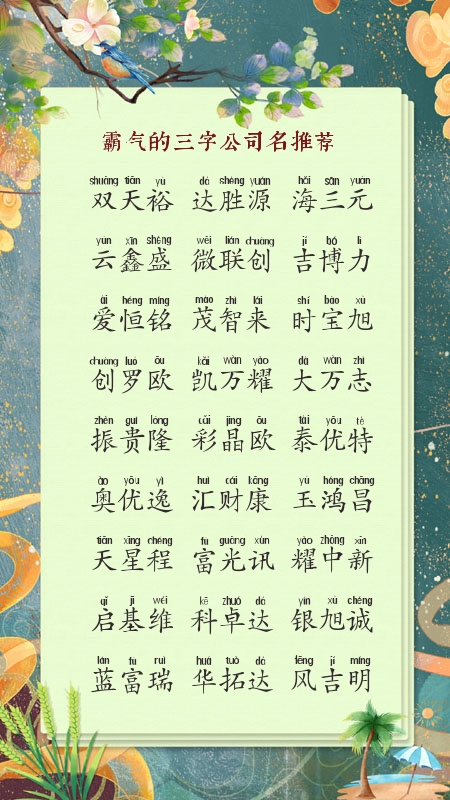 霸气的三字公司名推荐
shuāng tiān yù dá shèng yuán hǎi sān yuán
双天裕 达胜源 海三元
yún xīn shèng wēi lián chuàng jí bó lì
云鑫盛 微联创 吉博力
ài héng míng mào zhì lái shí bǎo xù
爱恒铭 茂智来 时宝旭
chuàng luó ōu kǎi wàn yào dà wàn zhì
创罗欧 凯万耀 大万志
zhèn guì lóng cǎi jīng ōu tài yōu tè
振贵隆 彩晶欧 泰优特
ào yōu yì huì cái kāng yù hóng chāng
奥优逸 汇财康 玉鸿昌
tiān xīng chéng fù guāng xùn yào zhōng xīn
天星程 富光讯 耀中新
qǐ jī wéi kē zhuó dá yín xù chéng
启基维 科卓达 银旭诚
lán fù ruì huá tuò dá fēng jí míng
蓝富瑞 华拓达 风吉明